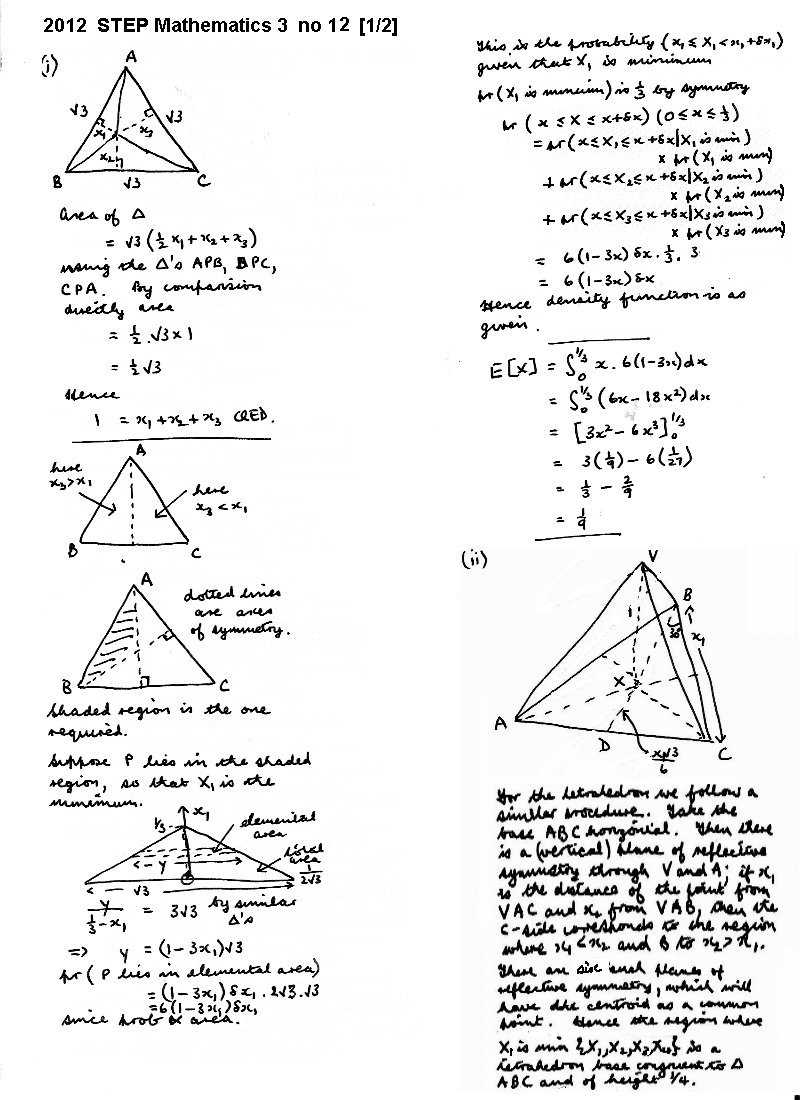 2012 STEP Mathematics 3 no 12 [1/2]
(i)
A
√3
√3
x₁
x₃
x₂
B
√3
C
Area of Δ
= √3(½x₁+x₂+x₃)
using the Δ's APB, BPC,
CPA. By comparison
directly area
= ½.√3×1
= ½√3
Hence
1 = x₁+x₂+x₃ QED.
A
here
x₃>x₁
here
x₃<x₁
B
C
A
dotted lines
are axes
of symmetry.
B
C
Shaded region is the one
required.
Suppose P lies in the shaded
region, so that X₁ is the
minimum.
x₁
1/3
elemental
area
total
area
1/2√3
← y
√3
y/(1/3-x₁) = 3√3 by similar
Δ's
⇒ y = (1-3x₁)√3
pr(P lies in elemental area)
= (1-3x₁)δx₁.2√3.√3
= 6(1-3x₁)δx₁
since prob ∝ area.
This is the probability (x₁≤X₁<x₁+δx₁)
given that X₁ is minimum
pr(X₁ is minimum) is 1/3 by symmetry
pr(x≤X≤x+δx) (0≤x≤1/3)
= pr(x≤X₁≤x+δx|X₁ is min)
× pr(X₁ is min)
+ pr(x≤X₂≤x+δx|X₂ is min)
× pr(X₂ is min)
+ pr(x≤X₃≤x+δx|X₃ is min)
× pr(X₃ is min)
= 6(1-3x)δx.1/3.3
= 6(1-3x)δx
Hence density function is as
given.
E[X] = ∫₀^1/3 x.6(1-3x)dx
= ∫₀^1/3 (6x-18x²)dx
= [3x²-6x³]₀^1/3
= 3(1/9)-6(1/27)
= 1/3 - 2/9
= 1/9
(ii)
V
B
1
30
x₁
X
A
D
C
x√3/6
For the tetrahedron we follow a
similar procedure. Take the
base ABC horizontal. Then there
is a (vertical) plane of reflective
symmetry through V and A; if x₁
is the distance of the point from
VAC and x₂ from VAB, then the
C-side corresponds to the region
where x₁<x₂ and B to x₂>x₁.
There are six such planes of
reflective symmetry, which will
have the centroid as a common
point. Hence the region where
X₁ is min {X₁,X₂,X₃,X₄} is a
tetrahedron base congruent to Δ
ABC and of height 1/4.